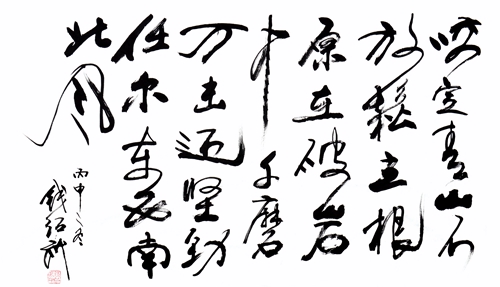 咬定青山不
放鬆立根
原在破岩
中千磨
万击还坚劲
任尔东西南
北风
丙申之冬
钱绍武